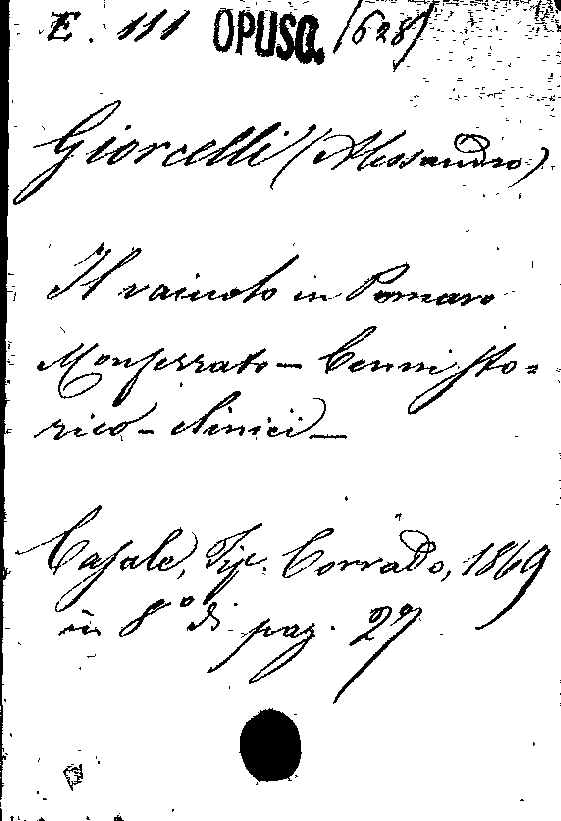 E. 111 OPUSC. (628)
Giorcelli (Alessandro)
Il vaiuolo in Pomaro
Monferrato – Cenni sto=
rico – clinici –
Casale, Tip. Corrado, 1869
in 8° di pag. 27